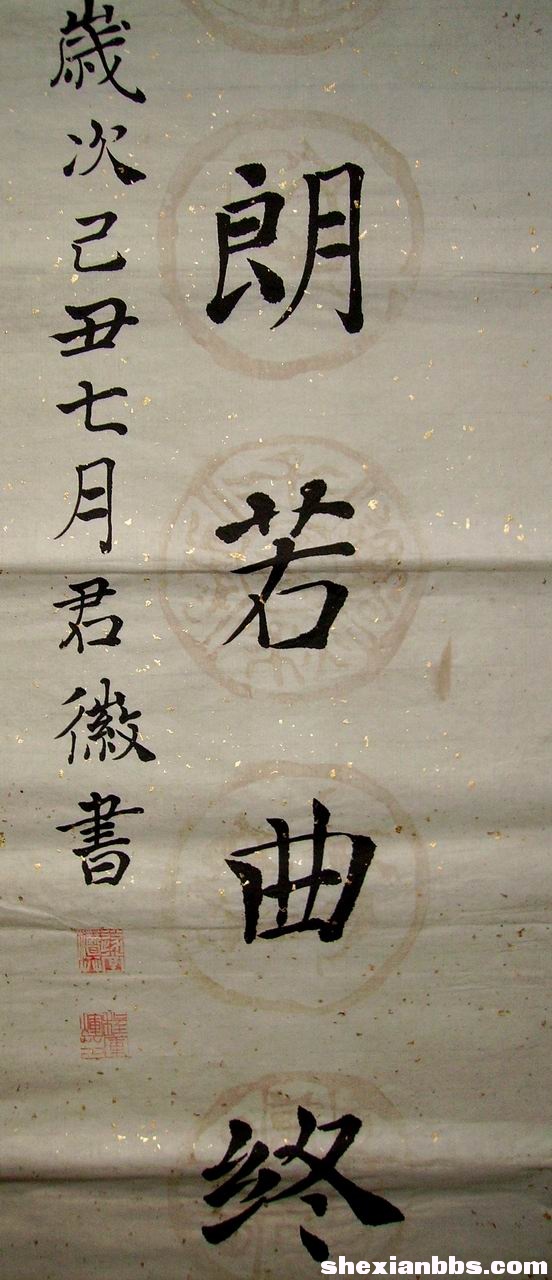 朗若曲終
歲次己丑七月君徽書
shexianbbs.com